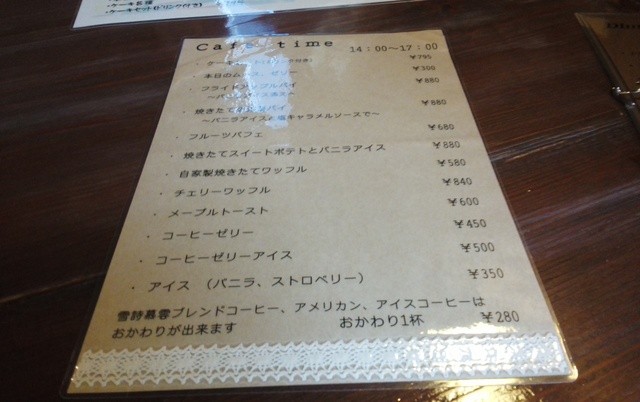 ケーキセット(ドリンク付き)
Cafe time 14:00～17:00
・ケーキ ￥795
・本日の ゼリー ￥300
・フライドアップルパイ ￥880
～バニラアイス
・焼きたて パイ ￥880
～バニラアイスと塩キャラメルソースで～
・フルーツパフェ ￥680
・焼きたてスイートポテトとバニラアイス ￥880
・自家製焼きたてワッフル ￥580
・チェリーワッフル ￥840
・メープルトースト ￥600
・コーヒーゼリー ￥450
・コーヒーゼリーアイス ￥500
・アイス (バニラ、ストロベリー) ￥350
雪詩慕雲ブレンドコーヒー、アメリカン、アイスコーヒーは
おかわりが出来ます おかわり1杯 ￥280